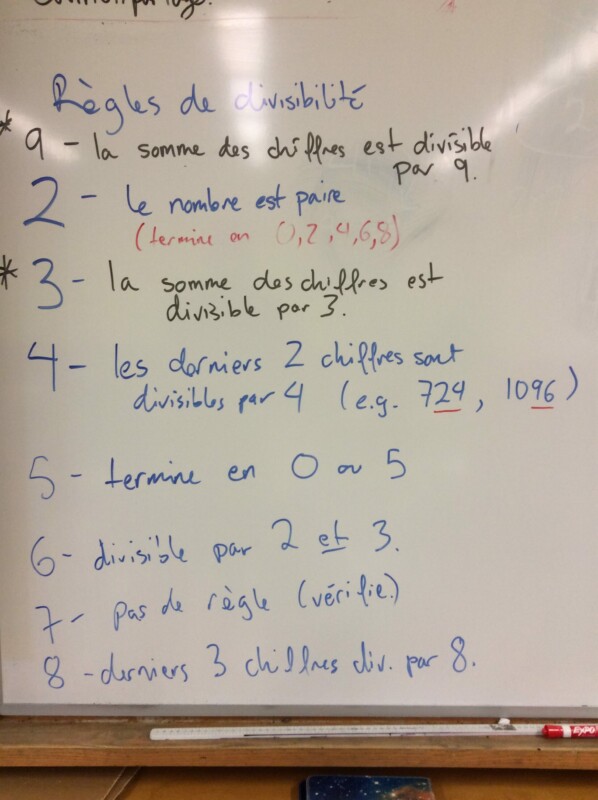 Règles de divisibilité
* 9 - la somme des chiffres est divisible
par 9.
2 - le nombre est paire
(termine en 0,2,4,6,8)
* 3 - la somme des chiffres est
divisible par 3.
4 - les derniers 2 chiffres sont
divisibles par 4 (e.g. 724, 1096)
5 - termine en 0 ou 5
6 - divisible par 2 et 3.
7 - pas de règle (vérifie.)
8 - derniers 3 chiffres div. par 8.
EXPO